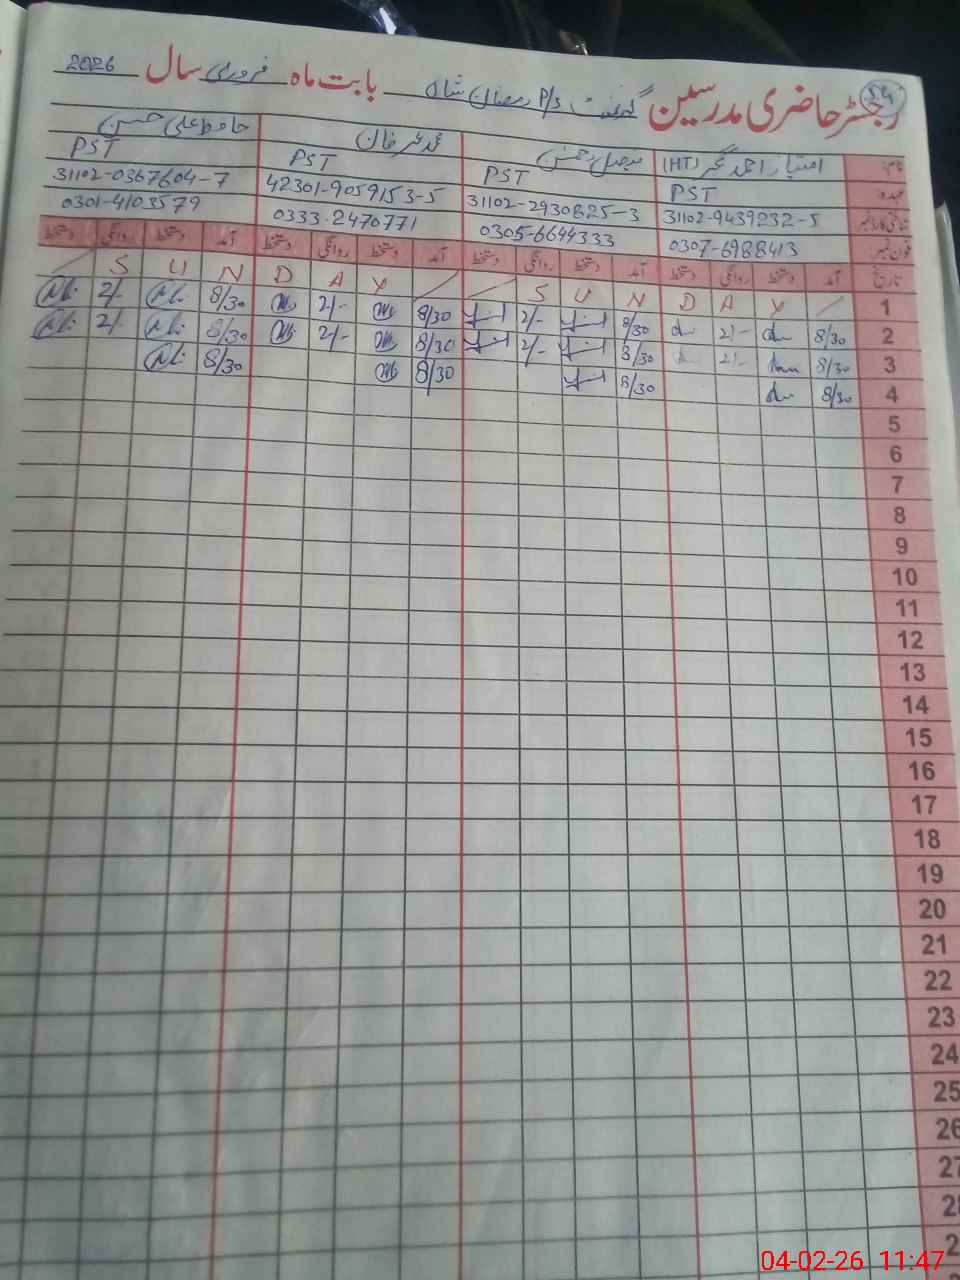 رجسٹر حاضری مدرسین گورنمنٹ P/S رمضان شاہ بابت ماہ فروری سال 2026
54
نام امتیاز احمد (HT) فیصل رحمن محمد عمر خان حافظ علی حسن
عہدہ PST PST PST PST
31102-9439232-5 31102-2930825-3 42301-9059153-5 31102-0367604-7
فون نمبر 0307-6988413 0305-6644333 0333-2470771 0301-4103579
تاریخ آمد دستخط روانگی دستخط آمد دستخط روانگی دستخط آمد دستخط روانگی دستخط آمد دستخط روانگی دستخط
1 S U N D A Y S U N D A Y
2 8/30 2/- 8/30 2/- 8/30 2/- 8/30 2/-
3 8/30 2/- 8/30 2/- 8/30 2/- 8/30 2/-
4 8/30 8/30 8/30 8/30
5
6
7
8
9
10
11
12
13
14
15
16
17
18
19
20
21
22
23
24
25
26
27
28
04-02-26 11:47